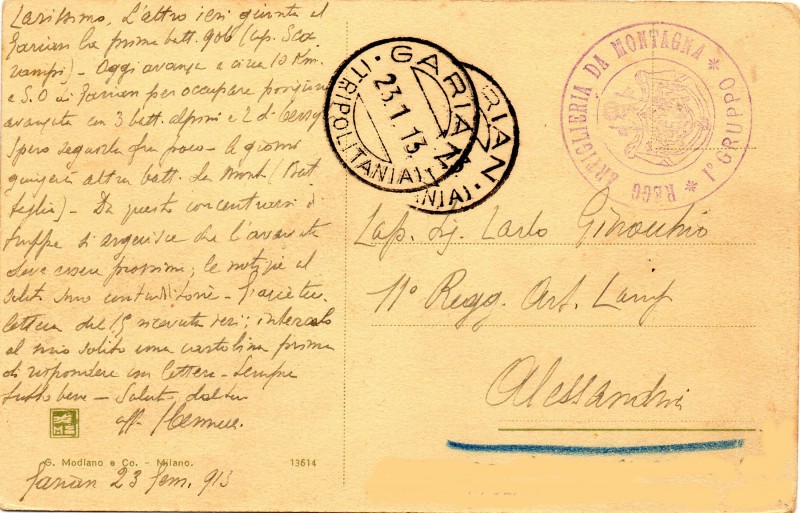 Carissimo, L'altro ieri giunta al
Garian la prima batt. gob (cap. Sca
rampi) - Oggi avanza a circa 10 Km.
a S.O di Garian per occupare posizione
avanzata con 3 batt. alpini e 2 di bersgl
Spero seguirla fra poco - A giorni
giungerà altra batt. da Mont (Bat
teglia) - Da questo concentrarsi di
truppe si arguisce che l'avanzata
deve essere prossima; le notizie al
solito sono contraditorie - Grazie tua
lettera del 15 ricevuta ieri; intercalo
al mio solito una cartolina prima
di rispondere con lettere - Sempre
tutto bene - Saluti dal tuo
aff.
G. Modiano e Co. - Milano.
13614
Garian 23 Genn. 913
GARIAN
23.1.13
(TRIPOLITANIA)
RIAN
NIA)
REGG ARTIGLIERIA DA MONTAGNA
1° GRUPPO
Cap. Sig. Carlo Ginocchio
11° Regg. Art. Camp
Alessandria